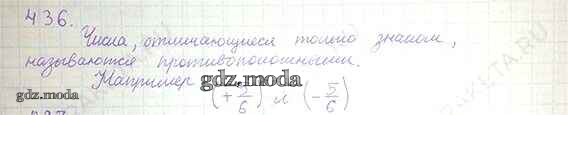 436.
Числа, отличающиеся только знаком,
называются противоположными.
Например gdz.moda (+5/6) и (-5/6)
gdz.moda